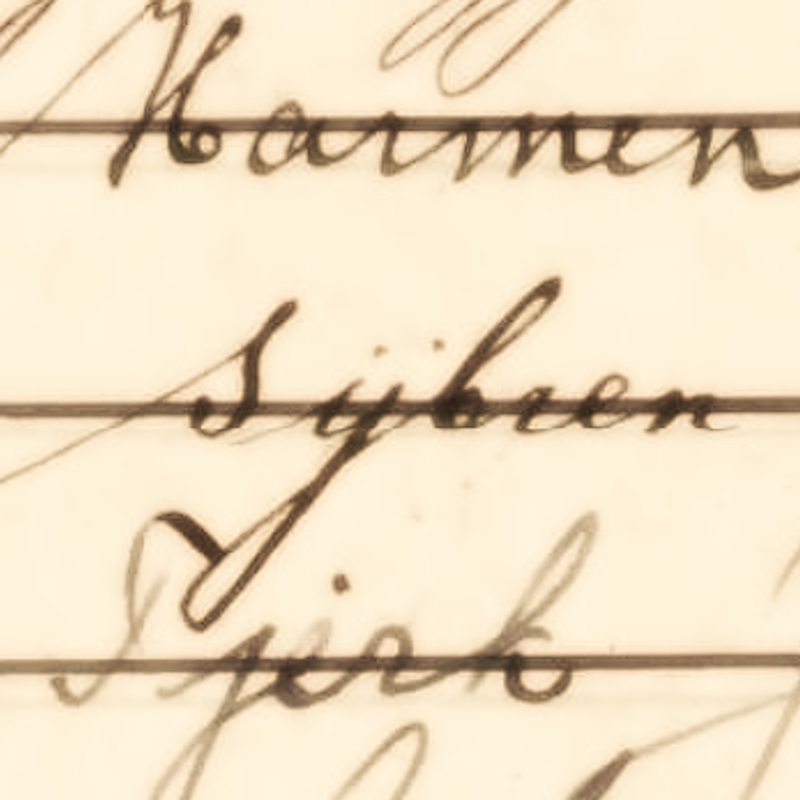 Harmen
Sijbren
Tjerk